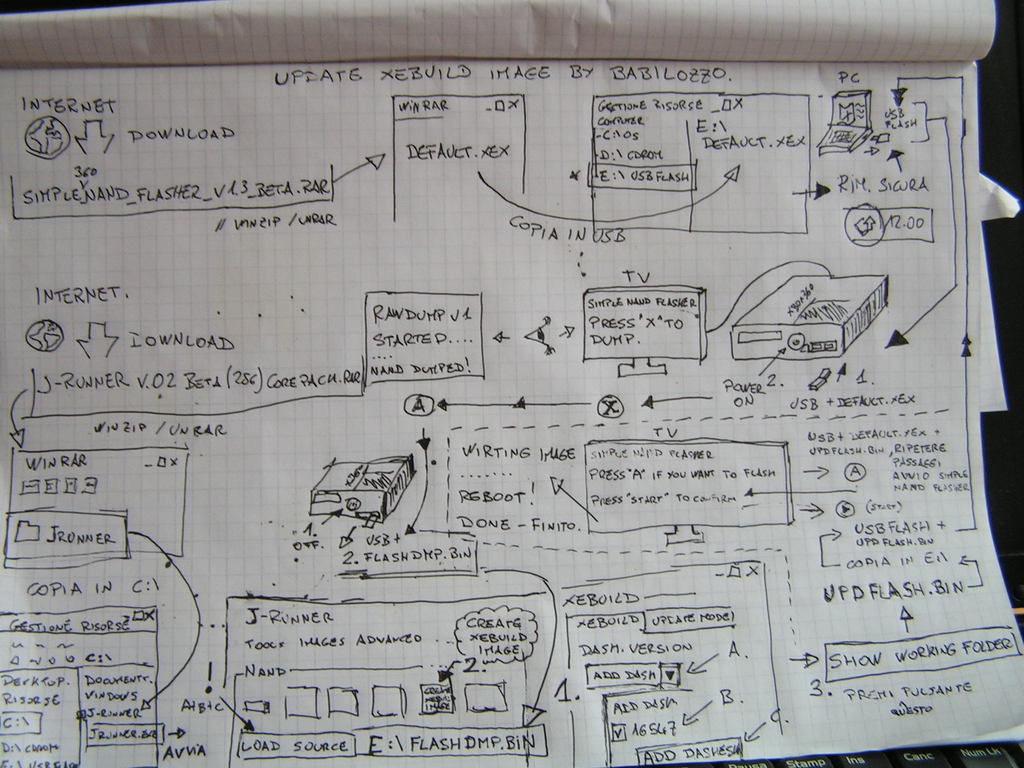 UPDATE XEBUILD IMAGE BY BABILOZZO.
INTERNET
DOWNLOAD
360
SIMPLE NAND_FLASHER_V1.3_BETA.RAR
// WINZIP / UNRAR
WINRAR _□X
DEFAULT.XEX
COPIA IN USB
GESTIONE RISORSE _□X
COMPUTER
-C:\OS
-D:\CDROM
* E:\USBFLASH
E:\
DEFAULT.XEX
PC
USB
FLASH
RIM. SICURA
12.00
INTERNET.
DOWNLOAD
J-RUNNER V.02 BETA (256) CORE PACK.RAR
WINZIP / UNRAR
RAWDUMP V1
STARTED....
....
NAND DUMPED!
TV
SIMPLE NAND FLASHER
PRESS "X" TO
DUMP.
XBOX360
POWER 2.
ON
1.
USB + DEFAULT.XEX
A
X
WINRAR _□X
JRUNNER
COPIA IN C:\
1.
OFF.
USB +
2. FLASHDMP.BIN
WIRTING IMAGE
......
REBOOT!
DONE - FINITO.
TV
SIMPLE NAND FLASHER
PRESS "A" IF YOU WANT TO FLASH
PRESS "START" TO CONFIRM
USB + DEFAULT.XEX +
UPDFLASH.BIN, RIPETERE
PASSAGGI
AVVIO SIMPLE
NAND FLASHER
A
(START)
USBFLASH +
UPDFLASH.BIN
COPIA IN E:\
UPDFLASH.BIN
SHOW WORKING FOLDER
3. PREMI PULSANTE
QUESTO
GESTIONE RISORSE □X
C:\
DESKTOP.
RISORSE
C:\
D:\CDROM
DOCUMENTI.
WINDOWS
J-RUNNER
JRUNNER.EXE
AVVIA
! A+B+C
J-RUNNER
TOOLS IMAGES ADVANCED ...
NAND
CREATE
XEBUILD
IMAGE
2.
CREATE
XEBUILD
IMAGE
LOAD SOURCE E:\FLASHDMP.BIN
_□X
XEBUILD
XEBUILD UPDATE MODE
DASH. VERSION
1. ADD DASH A.
ADD DASH
V 16547 B.
ADD DASHES C.
Pause
Stamp
Ins
Canc
Num Lk